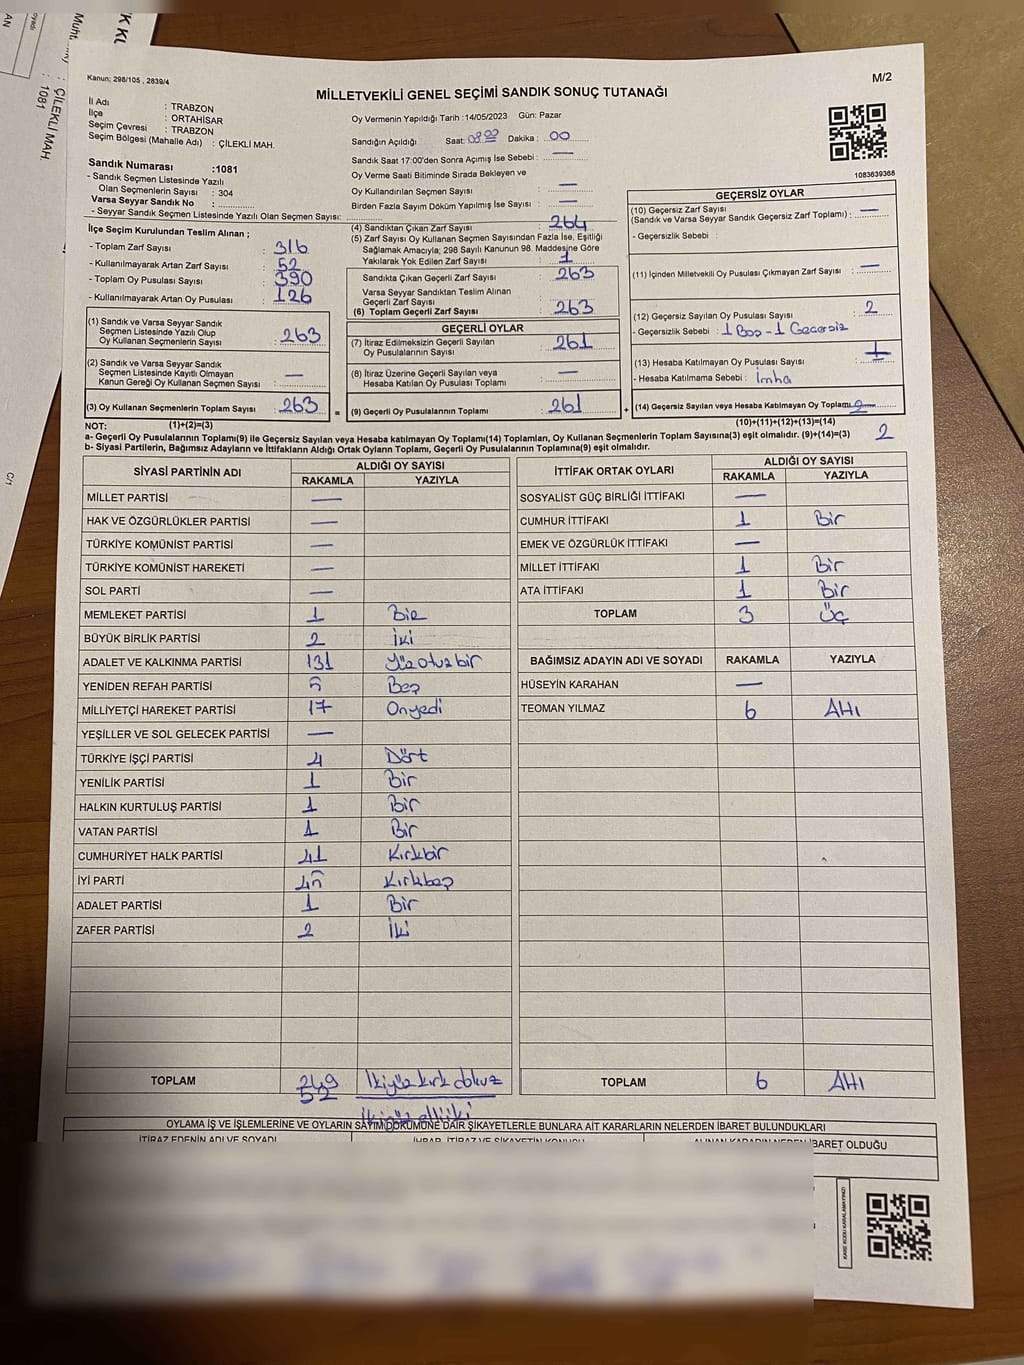 K KL
Muht
: ÇİLEKLİ MAH.
: 1081
C/1
Kanun; 298/105 , 2839/4
M/2
MİLLETVEKİLİ GENEL SEÇİMİ SANDIK SONUÇ TUTANAĞI
İl Adı : TRABZON
İlçe : ORTAHİSAR
Seçim Çevresi : TRABZON
Seçim Bölgesi (Mahalle Adı) : ÇİLEKLİ MAH.
Sandık Numarası :1081
- Sandık Seçmen Listesinde Yazılı
Olan Seçmenlerin Sayısı : 304
Varsa Seyyar Sandık No :
- Seyyar Sandık Seçmen Listesinde Yazılı Olan Seçmen Sayısı:
Oy Vermenin Yapıldığı Tarih :14/05/2023 Gün: Pazar
Sandığın Açıldığı Saat: 08:00 Dakika : 00
Sandık Saat 17:00'den Sonra Açımış İse Sebebi : —
Oy Verme Saati Bitiminde Sırada Bekleyen ve
Oy Kullandırılan Seçmen Sayısı : —
Birden Fazla Sayım Döküm Yapılmış İse Sayısı : —
1083639368
İlçe Seçim Kurulundan Teslim Alınan ;
- Toplam Zarf Sayısı : 316
- Kullanılmayarak Artan Zarf Sayısı : 52
- Toplam Oy Pusulası Sayısı : 390
- Kullanılmayarak Artan Oy Pusulası : 126
(1) Sandık ve Varsa Seyyar Sandık
Seçmen Listesinde Yazılı Olup
Oy Kullanan Seçmenlerin Sayısı : 263
(2) Sandık ve Varsa Seyyar Sandık
Seçmen Listesinde Kayıtlı Olmayan
Kanun Gereği Oy Kullanan Seçmen Sayısı : —
(3) Oy Kullanan Seçmenlerin Toplam Sayısı : 263 =
(4) Sandıktan Çıkan Zarf Sayısı : 264
(5) Zarf Sayısı Oy Kullanan Seçmen Sayısından Fazla İse, Eşitliği
Sağlamak Amacıyla; 298 Sayılı Kanunun 98. Maddesine Göre
Yakılarak Yok Edilen Zarf Sayısı : 1
Sandıkta Çıkan Geçerli Zarf Sayısı : 263
Varsa Seyyar Sandıktan Teslim Alınan
Geçerli Zarf Sayısı
(6) Toplam Geçerli Zarf Sayısı : 263
GEÇERLİ OYLAR
(7) İtiraz Edilmeksizin Geçerli Sayılan
Oy Pusulalarının Sayısı : 261
(8) İtiraz Üzerine Geçerli Sayılan veya
Hesaba Katılan Oy Pusulası Toplamı : —
(9) Geçerli Oy Pusulalarının Toplamı : 261 +
GEÇERSİZ OYLAR
(10) Geçersiz Zarf Sayısı
(Sandık ve Varsa Seyyar Sandık Geçersiz Zarf Toplamı) : —
- Geçersizlik Sebebi :
(11) İçinden Milletvekili Oy Pusulası Çıkmayan Zarf Sayısı : —
(12) Geçersiz Sayılan Oy Pusulası Sayısı : 2
- Geçersizlik Sebebi : 1 Boş - 1 Geçersiz
(13) Hesaba Katılmayan Oy Pusulası Sayısı : 1
- Hesaba Katılmama Sebebi : İmha
(14) Geçersiz Sayılan veya Hesaba Katılmayan Oy Toplamı 2
(10)+(11)+(12)+(13)=(14)
2
NOT: (1)+(2)=(3)
a- Geçerli Oy Pusulalarının Toplamı(9) ile Geçersiz Sayılan veya Hesaba katılmayan Oy Toplamı(14) Toplamları, Oy Kullanan Seçmenlerin Toplam Sayısına(3) eşit olmalıdır. (9)+(14)=(3)
b- Siyasi Partilerin, Bağımsız Adayların ve İttifakların Aldığı Ortak Oyların Toplamı, Geçerli Oy Pusulalarının Toplamına(9) eşit olmalıdır.
SİYASİ PARTİNİN ADI ALDIĞI OY SAYISI
RAKAMLA YAZIYLA
MİLLET PARTİSİ —
HAK VE ÖZGÜRLÜKLER PARTİSİ —
TÜRKİYE KOMÜNİST PARTİSİ —
TÜRKİYE KOMÜNİST HAREKETİ —
SOL PARTİ —
MEMLEKET PARTİSİ 1 Bir
BÜYÜK BİRLİK PARTİSİ 2 İki
ADALET VE KALKINMA PARTİSİ 131 Yüzotuzbir
YENİDEN REFAH PARTİSİ 5 Beş
MİLLİYETÇİ HAREKET PARTİSİ 17 Onyedi
YEŞİLLER VE SOL GELECEK PARTİSİ —
TÜRKİYE İŞÇİ PARTİSİ 4 Dört
YENİLİK PARTİSİ 1 Bir
HALKIN KURTULUŞ PARTİSİ 1 Bir
VATAN PARTİSİ 1 Bir
CUMHURİYET HALK PARTİSİ 41 Kırkbir
İYİ PARTİ 45 Kırkbeş
ADALET PARTİSİ 1 Bir
ZAFER PARTİSİ 2 İki
TOPLAM 249 İkiyüz kırk dokuz
52 İkiyüz elliiki
İTTİFAK ORTAK OYLARI ALDIĞI OY SAYISI
RAKAMLA YAZIYLA
SOSYALİST GÜÇ BİRLİĞİ İTTİFAKI —
CUMHUR İTTİFAKI 1 Bir
EMEK VE ÖZGÜRLÜK İTTİFAKI —
MİLLET İTTİFAKI 1 Bir
ATA İTTİFAKI 1 Bir
TOPLAM 3 Üç
BAĞIMSIZ ADAYIN ADI VE SOYADI RAKAMLA YAZIYLA
HÜSEYİN KARAHAN —
TEOMAN YILMAZ 6 AHI
TOPLAM 6 AHI
OYLAMA İŞ VE İŞLEMLERİNE VE OYLARIN SAYIM DÖKÜMÜNE DAİR ŞİKAYETLERLE BUNLARA AİT KARARLARIN NELERDEN İBARET BULUNDUKLARI
İTİRAZ EDENİN ADI VE SOYADI İHBAR, İTİRAZ VE ŞİKAYETİN KONUSU ALINAN KARARIN NEDEN İBARET OLDUĞU
KARE KODU KARALAMAYINIZ!